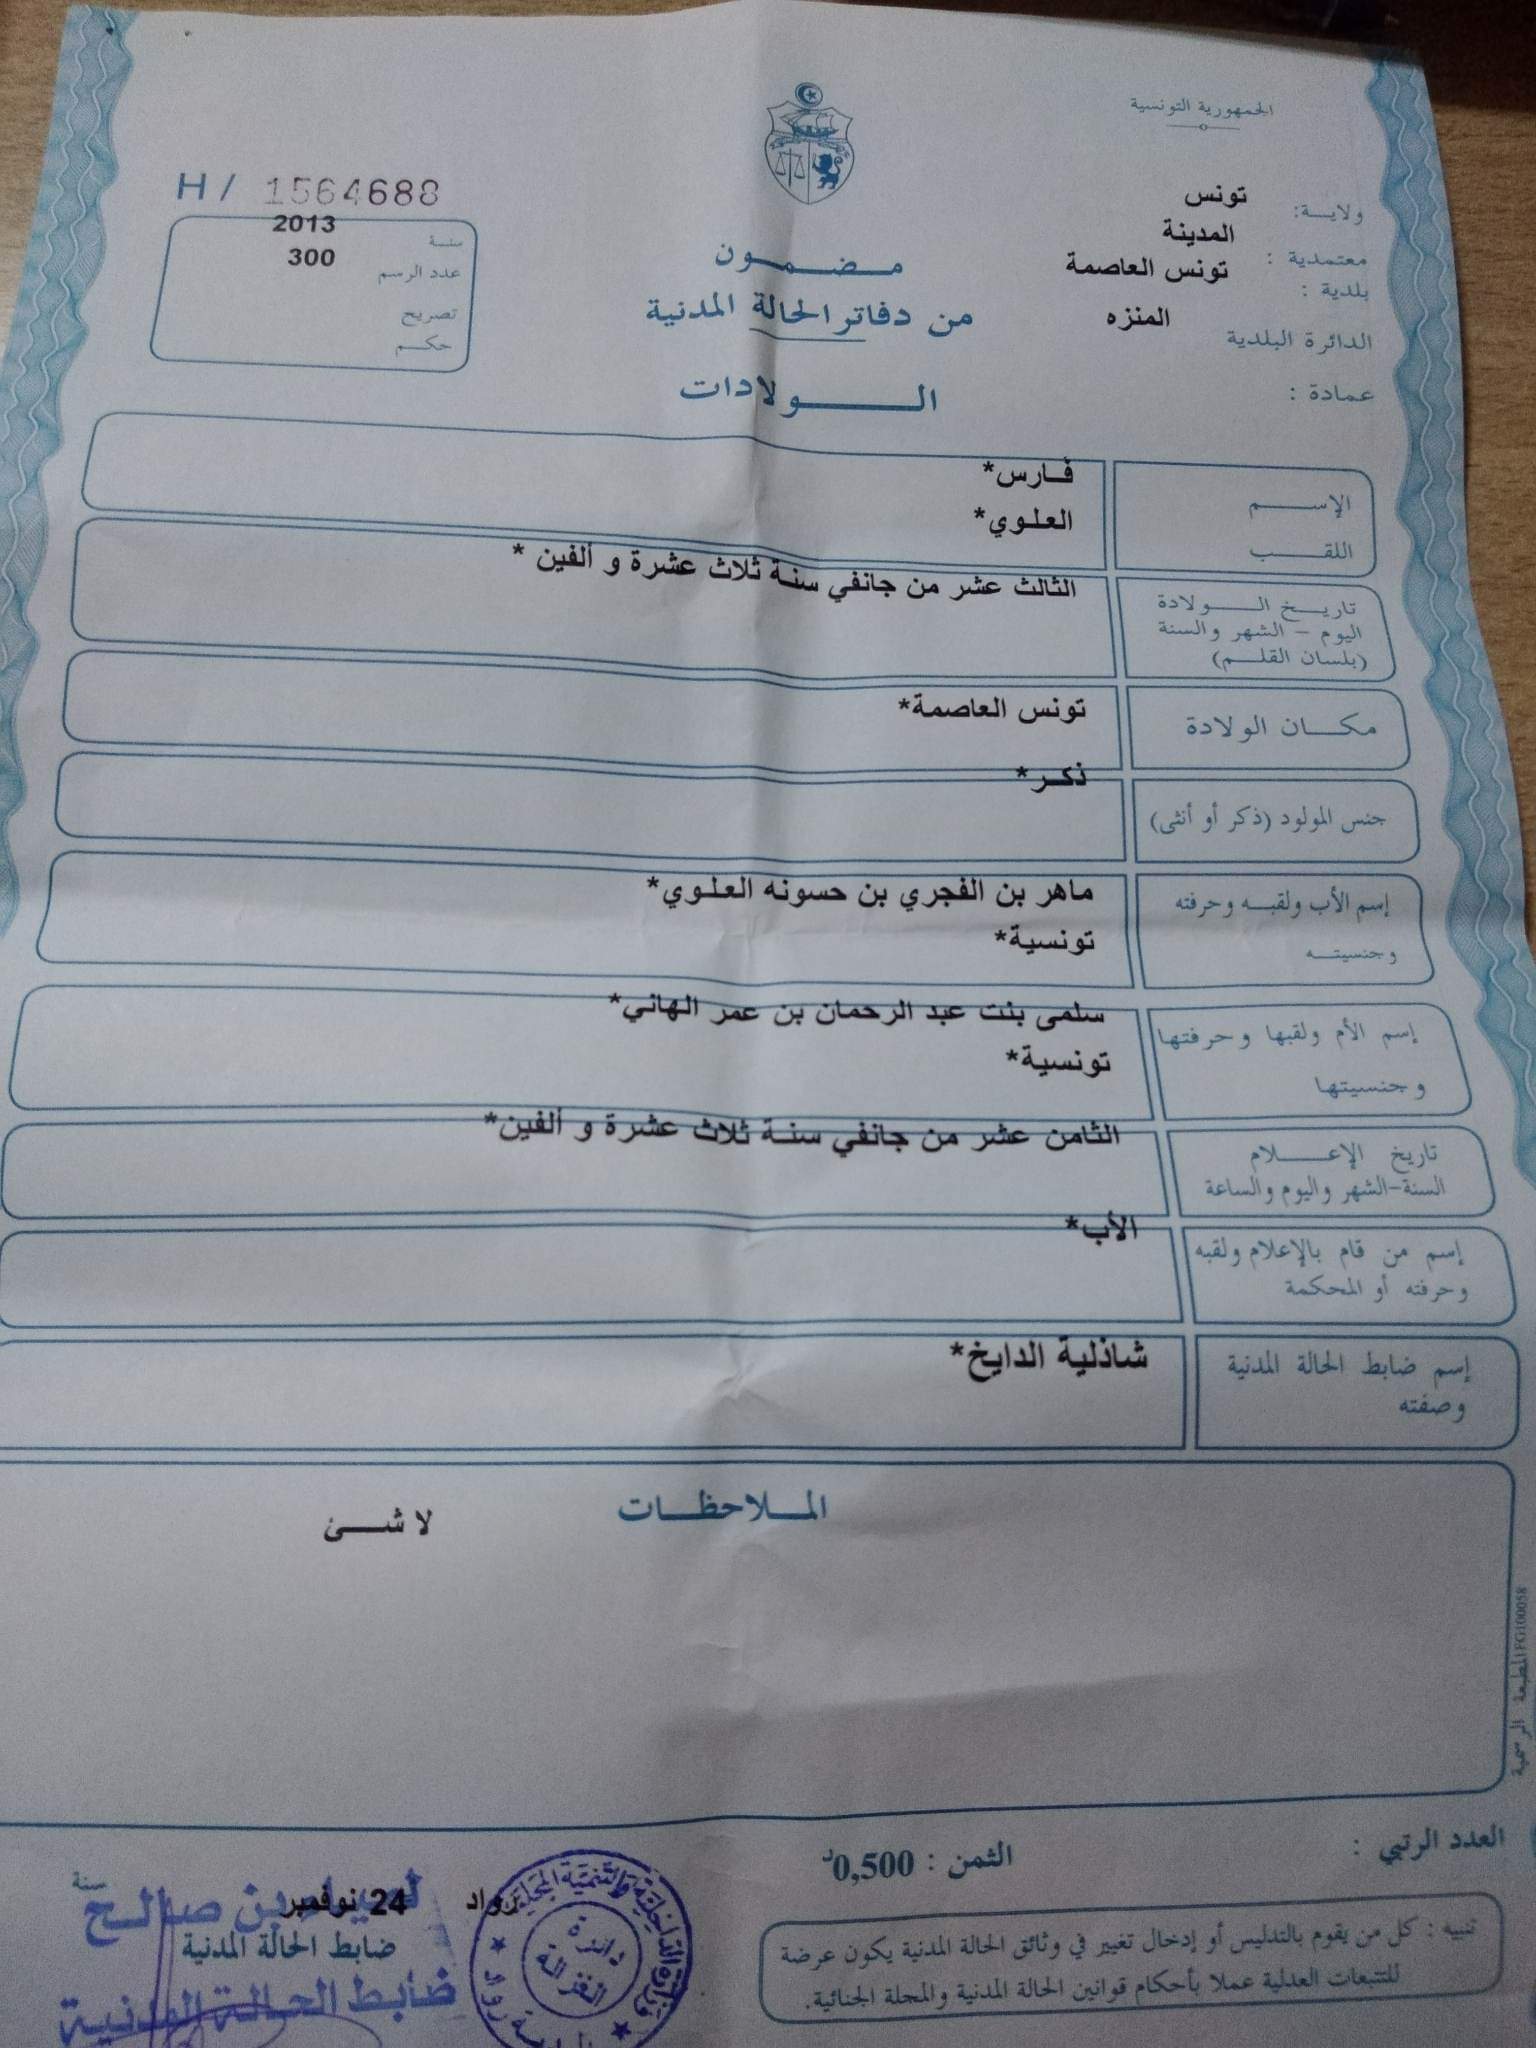 الجمهورية التونسية
ولايـــة: تونس
معتمدية : المدينة
بلدية : تونس العاصمة
الدائرة البلدية المنزه
عمادة :
مـــضـــمـــون
من دفاتر الحالة المدنية
الـــــولادات
H / 1564688
سنـــة 2013
عدد الرسم 300
تصريح
حكـــم
الإســـــم فـارس*
اللقـــــب العـلـوي*
تاريـــخ الـــــولادة
اليوم - الشهر والسنة
(بلسان القلـــم)
الثالث عشر من جانفي سنة ثلاث عشرة و ألفين *
مكـــان الولادة تونس العاصمة*
جنس المولود (ذكر أو أنثى) ذكـر*
إسم الأب ولقبـــه وحرفته ماهر بن الفجري بن حسونه العـلـوي*
وجنسيتـــه تونسية*
إسم الأم ولقبها وحرفتها سلمى بنت عبد الرحمان بن عمر الهاني*
وجنسيتها تونسية*
تاريخ الإعـــــلام
السنة-الشهر واليوم والساعة
الثامن عشر من جانفي سنة ثلاث عشرة و ألفين*
إسم من قام بالإعلام ولقبه
وحرفته أو المحكمة
الأب*
إسم ضابط الحالة المدنية
وصفته
شاذلية الدايخ*
المـــلاحظـــات
لا شـــئ
المطبعة الرسمية FG100058
العدد الرتبي :
الثمن : 0,500د
تنبيه : كل من يقوم بالتدليس أو إدخال تغيير في وثائق الحالة المدنية يكون عرضة
للتتبعات العدلية عملا بأحكام قوانين الحالة المدنية والمجلة الجنائية.
رواد 24 نوفمبر سنة
ضابط الحالة المدنية
بن صالح
ضابط الحالة المدنية
وزارة الداخلية والتنمية المحلية
دائرة
الغزالة
بلدية رواد